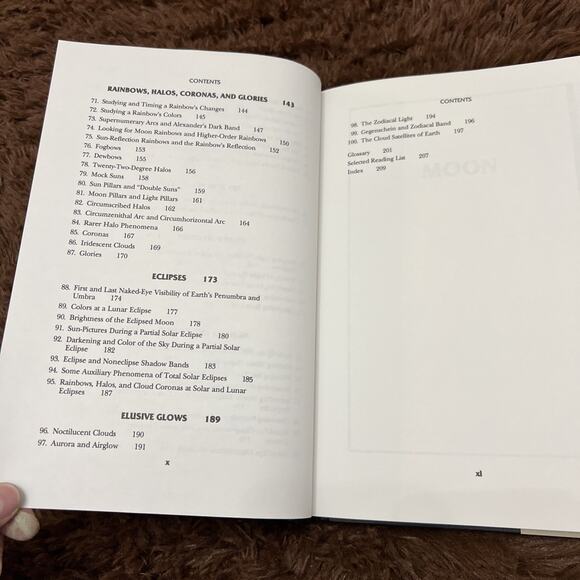 CONTENTS
RAINBOWS, HALOS, CORONAS, AND GLORIES 143
71. Studying and Timing a Rainbow's Changes 144
72. Studying a Rainbow's Colors 145
73. Supernumerary Arcs and Alexander's Dark Band 147
74. Looking for Moon Rainbows and Higher-Order Rainbows 150
75. Sun-Reflection Rainbows and the Rainbow's Reflection 152
76. Fogbows 153
77. Dewbows 155
78. Twenty-Two-Degree Halos 156
79. Mock Suns 158
80. Sun Pillars and "Double Suns" 159
81. Moon Pillars and Light Pillars 161
82. Circumscribed Halos 162
83. Circumzenithal Arc and Circumhorizontal Arc 164
84. Rarer Halo Phenomena 166
85. Coronas 167
86. Iridescent Clouds 169
87. Glories 170
ECLIPSES 173
88. First and Last Naked-Eye Visibility of Earth's Penumbra and
Umbra 174
89. Colors at a Lunar Eclipse 177
90. Brightness of the Eclipsed Moon 178
91. Sun-Pictures During a Partial Solar Eclipse 180
92. Darkening and Color of the Sky During a Partial Solar
Eclipse 182
93. Eclipse and Noneclipse Shadow Bands 183
94. Some Auxiliary Phenomena of Total Solar Eclipses 185
95. Rainbows, Halos, and Cloud Coronas at Solar and Lunar
Eclipses 187
ELUSIVE GLOWS 189
96. Noctilucent Clouds 190
97. Aurora and Airglow 191
x
CONTENTS
98. The Zodiacal Light 194
99. Gegenschein and Zodiacal Band 196
100. The Cloud Satellites of Earth 197
Glossary 201
Selected Reading List 207
Index 209
MOON
xi